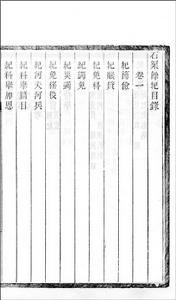 石渠餘紀目錄
卷一
紀節儉
紀賑貸
紀免科
紀蠲免
紀災蠲
紀免徭役
紀河夫河兵
紀科舉額目
紀科舉加恩